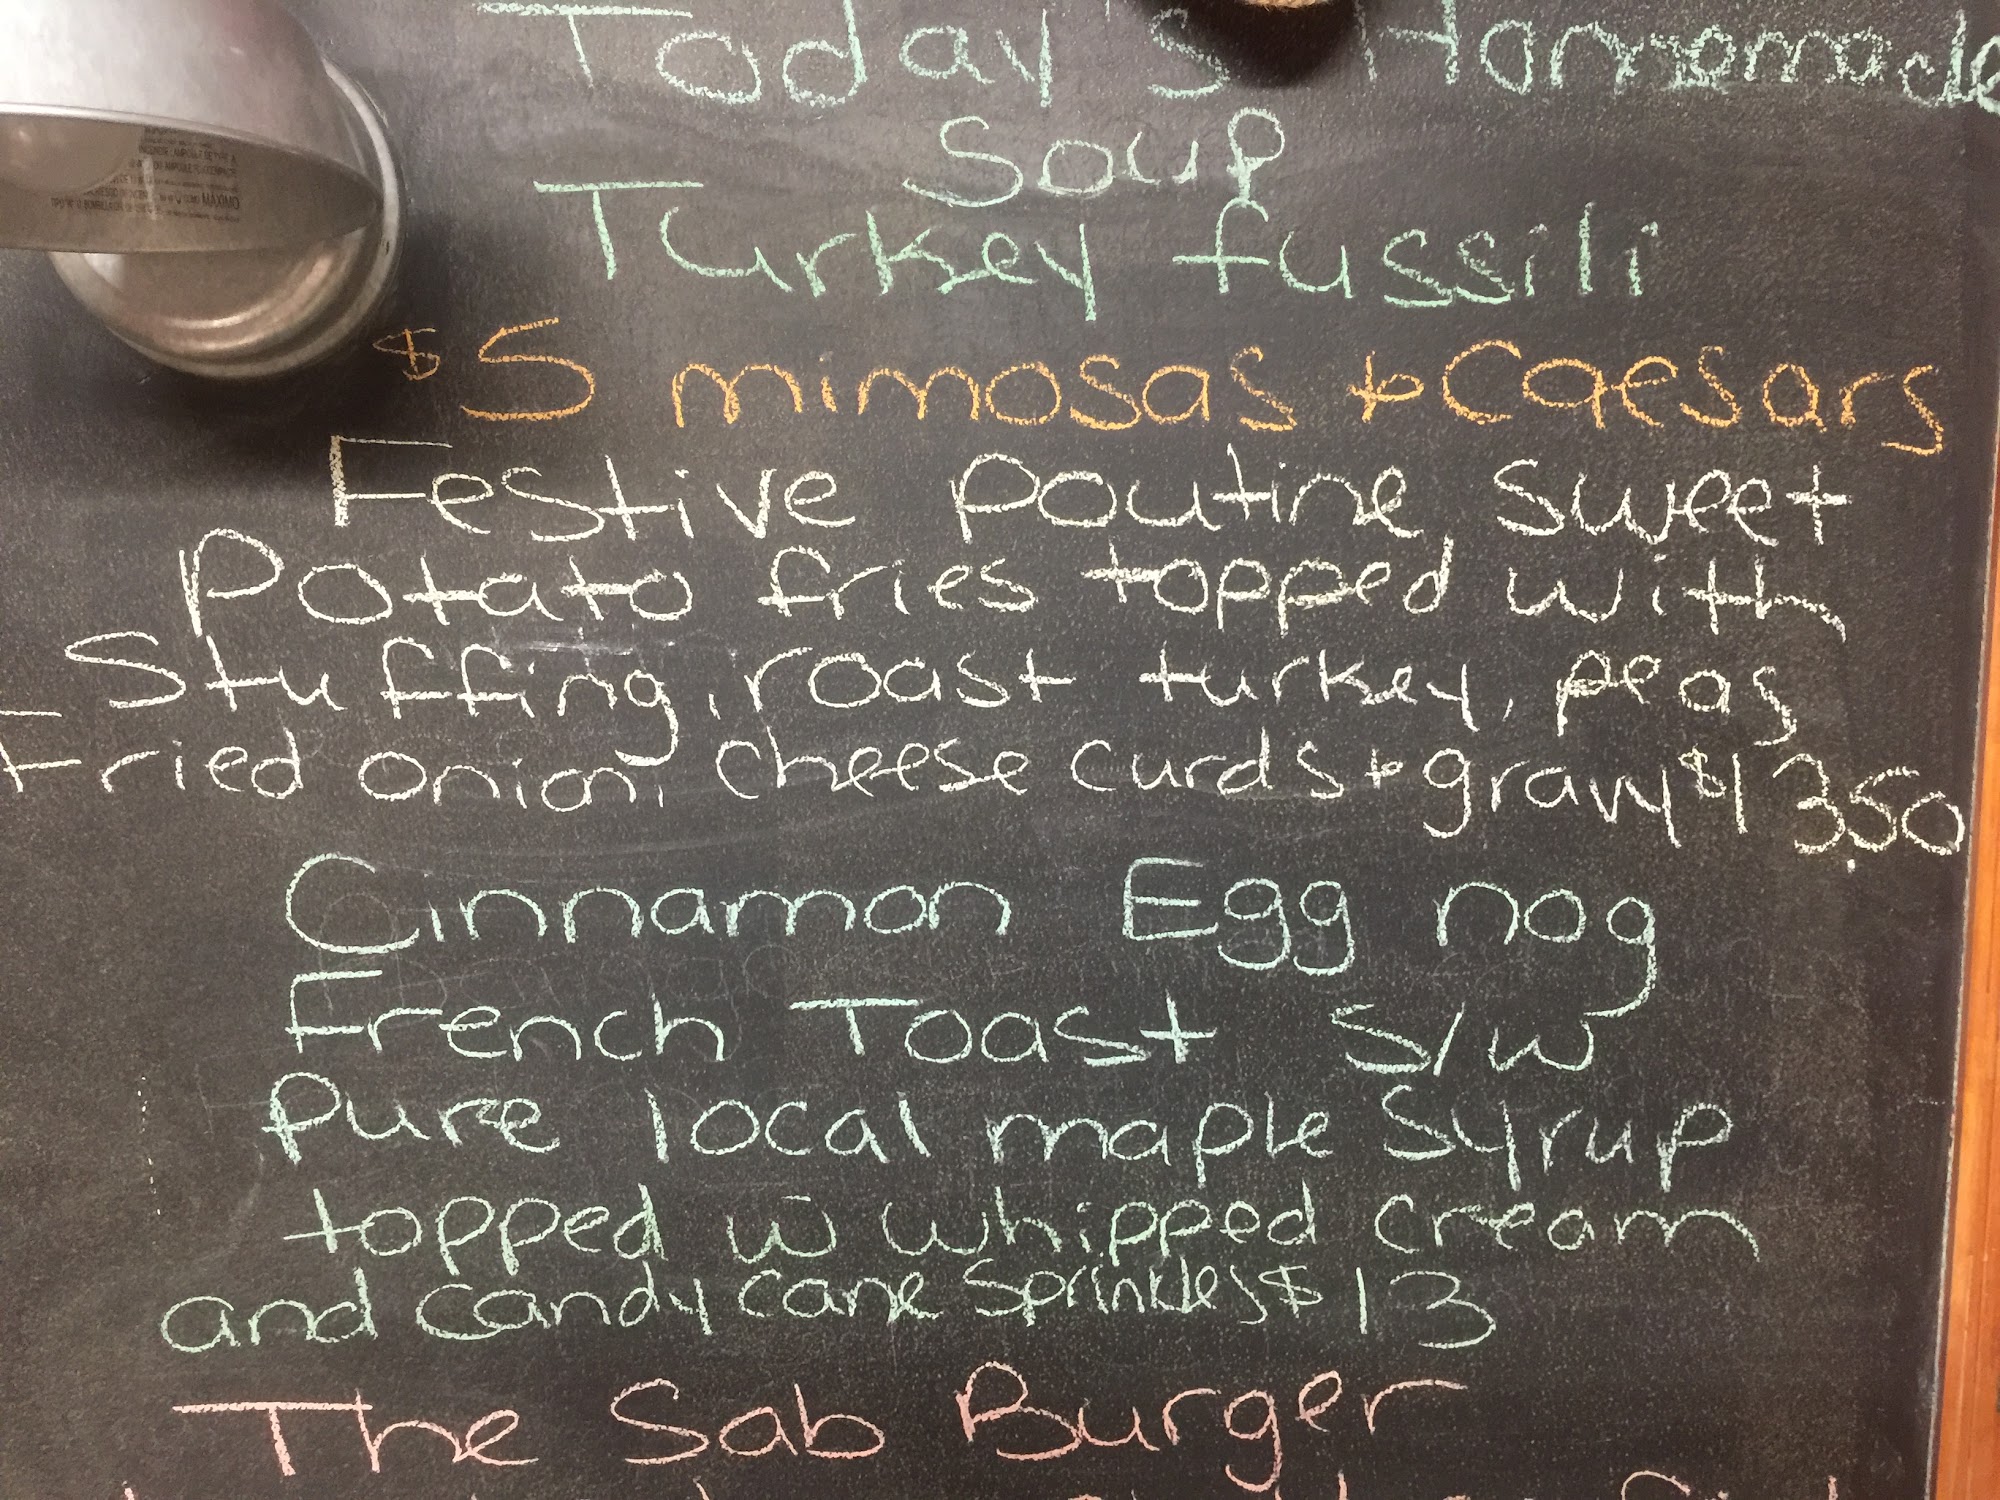 Today's Homemade
Soup
Turkey fussili
$5 mimosas + Caesars
Festive poutine, sweet
Potato fries topped with
Stuffing, roast turkey, peas
Fried onion, cheese curds + gravy $13.50
Cinnamon Egg nog
French Toast s/w
Pure local maple syrup
topped w whipped cream
and candy cane sprinkles $13
The Sab Burger
MÁXIMO